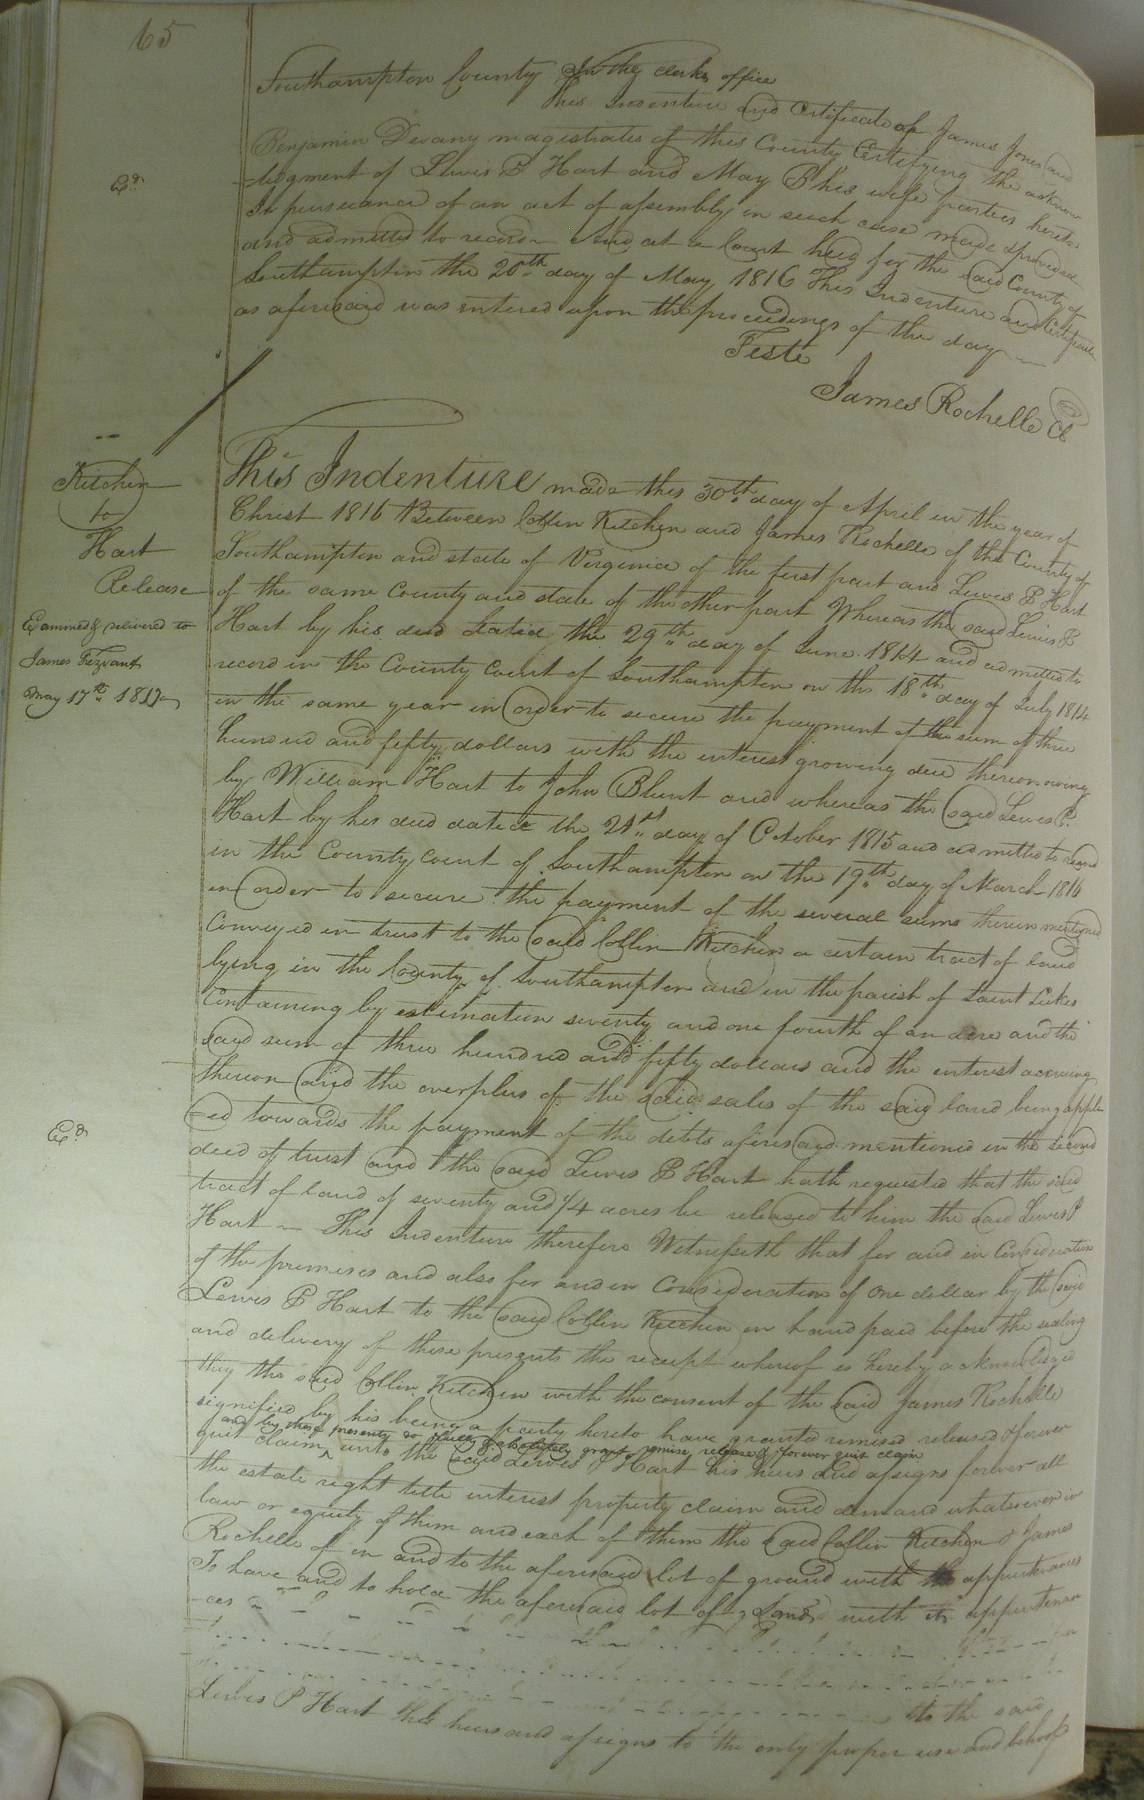 65
Southampton County In the clerks office
This Indenture and Certificate of James Jones and
Benjamin Devany magistrates of this County Certifying the acknow
-ledgment of Lewis P Hart and May B his wife parties hereto
In pursuance of an act of assembly in such case made & provided
and admitted to record And at a Court held for the said County of
Southampton the 20th day of May 1816 This Indenture and Certificate
as aforesaid was entered upon the proceedings of the day
Teste
James Rochelle Cl
Exd
Kitchen
to
Hart
Release
Examined & delivered to
James Trezvant
May 17th 1817
This Indenture made this 30th day of April in the year of
Christ 1816 Between Collin Kitchen and James Rochelle of the County of
Southampton and state of Virginia of the first part and Lewis P Hart
of the same County and state of the other part Whereas the said Lewis P
Hart by his deed dated the 29th day of June 1814 and admitted to
record in the County Court of Southampton on the 18th day of July 1814
in the same year in order to secure the payment of the sum of three
hundred and fifty dollars with the interest growing due thereon owing
by William Hart to John Blunt and whereas the said Lewis P.
Hart by his deed dated the 21st day of October 1815 and admitted to record
in the County Court of Southampton on the 19th day of March 1816
in order to secure the payment of the several sums therein mentioned
Conveyed in trust to the said Collin Kitchen a certain tract of land
lying in the County of Southampton and in the parish of Saint Lukes
Containing by estimation seventy and one fourth of an acre and the
said sum of three hundred and fifty dollars and the interest accruing
thereon and the overplus of the said sales of the said land being appli
-ed towards the payment of the debts aforesaid mentioned in the second
deed of trust and the said Lewis P Hart hath requested that the said
tract of land of seventy and 1/4 acres be released to him the said Lewis P
Hart This Indenture therefore Witnesseth that for and in Consideration
of the premises and also for and in Consideration of one dollar by the said
Lewis P Hart to the said Collin Kitchen in hand paid before the sealing
and delivery of these presents the receipt whereof is hereby acknowledged
they the said Collin Kitchen with the consent of the said James Rochelle
signified by his being a party hereto have granted remised released & forever
and by these presents do fully & absolutely grant remise release & forever quit claim
quit claim ^ unto the said Lewis P Hart his heirs and assigns forever all
the estate right title interest property claim and demand whatsoever in
law or equity of them and each of them the said Collin Kitchen & James
Rochelle of in and to the aforesaid lot of ground with the appurtenances
To have and to hold the aforesaid lot of Land with its appurtenan
-ces
to the said
Lewis P Hart his heirs and assigns to the only proper use and behoof
Exd